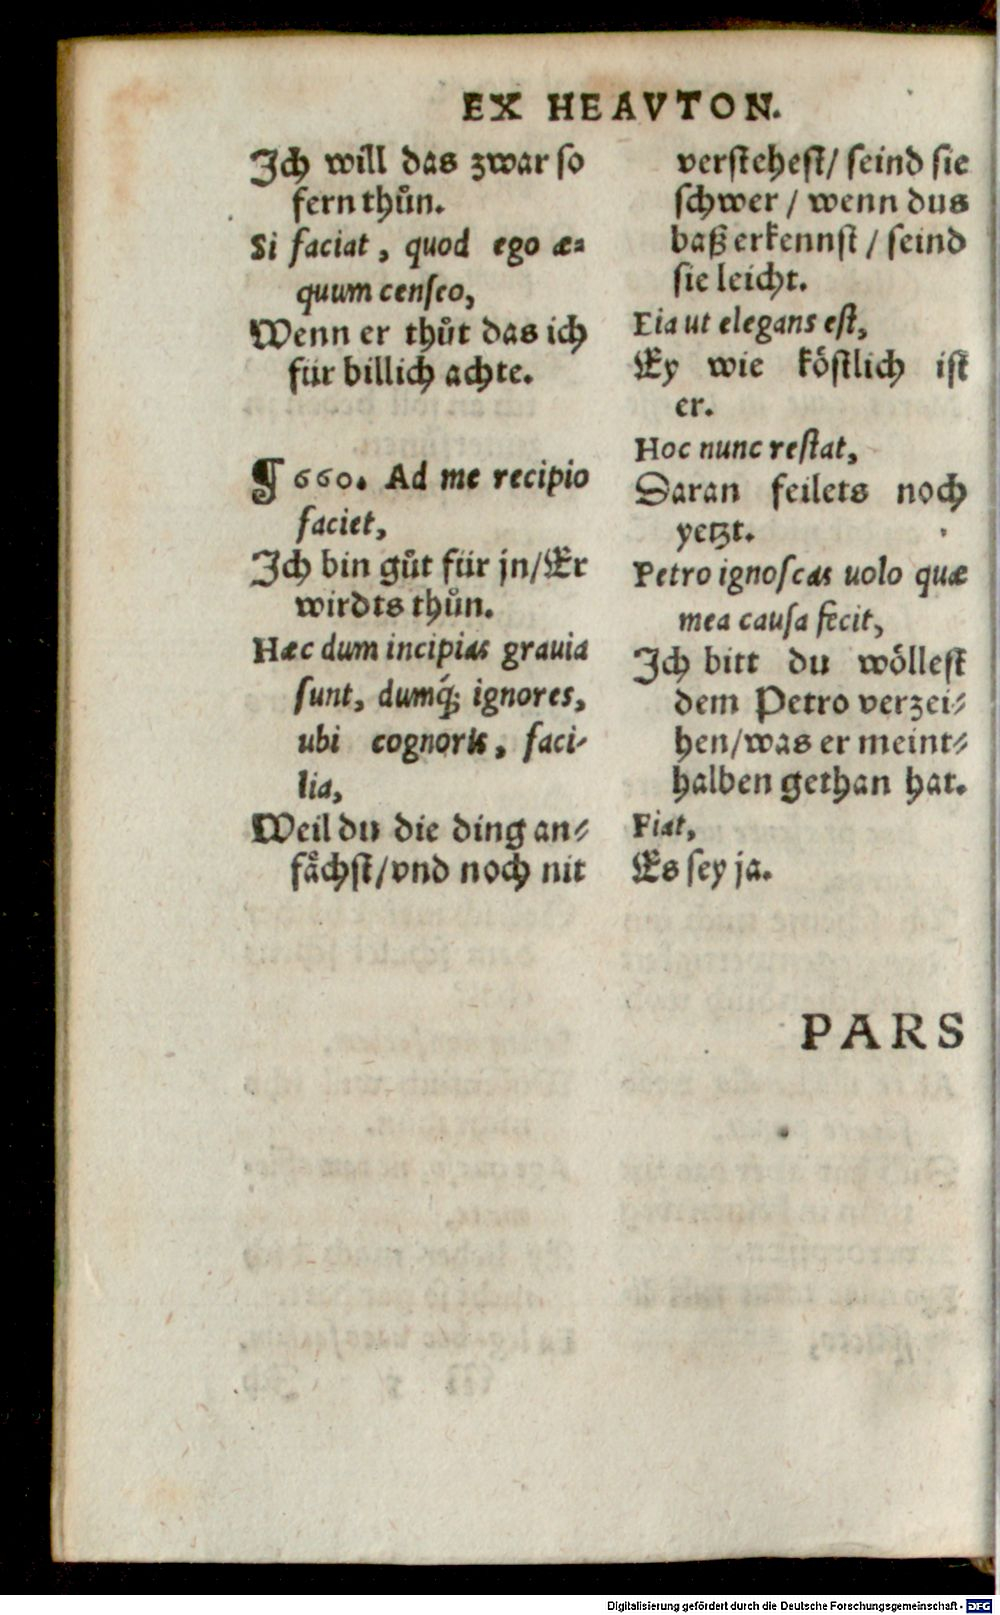 EX HEAVTON.
Ich will das zwar so
fern thůn.
Si faciat, quod ego æ-
quum censeo,
Wenn er thůt das ich
für billich achte.
¶ 660. Ad me recipio
faciet,
Ich bin gůt für jn/Er
wirdts thůn.
Hæc dum incipias grauia
sunt, dumq́; ignores,
ubi cognoris, faci-
lia,
Weil du die ding an-
fåchst/vnd noch nit
verstehest/ seind sie
schwer / wenn dus
baß erkennst / seind
sie leicht.
Eia ut elegans est,
Ey wie köstlich ist
er.
Hoc nunc restat,
Daran feilets noch
yetzt.
Petro ignoscas uolo quæ
mea causa fecit,
Ich bitt du wöllest
dem Petro verzei-
hen/was er meint-
halben gethan hat.
Fiat,
Es sey ja.
PARS
Digitalisierung gefördert durch die Deutsche Forschungsgemeinschaft - DFG